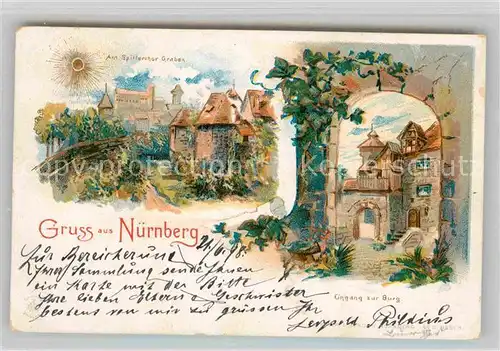 Am Spittlerthor Graben
Gruss aus Nürnberg.
Eingang zur Burg.
Zur Bereicherung
Ihrer Sammlung sende Ihnen
ein Karte mit der Bitte
Ihre lieben Eltern & Geschwister
bestens von mir zu grüssen Ihr
Leopold